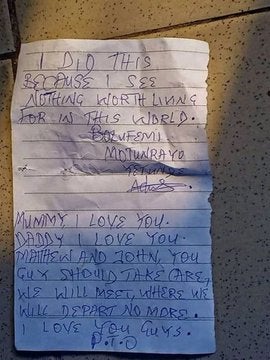 I DID THIS
BECAUSE I SEE
NOTHING WORTH LIVING
FOR IN THIS WORLD.
BOLUFEMI
MOTUNRAYO
MUMMY I LOVE YOU.
DADDY I LOVE YOU.
MATHEW AND JOHN, YOU
GUY SHOULD TAKE CARE,
WE WILL MEET, WHERE WE
WILL DEPART NO MORE.
I LOVE YOU GUYS.
P.T.O